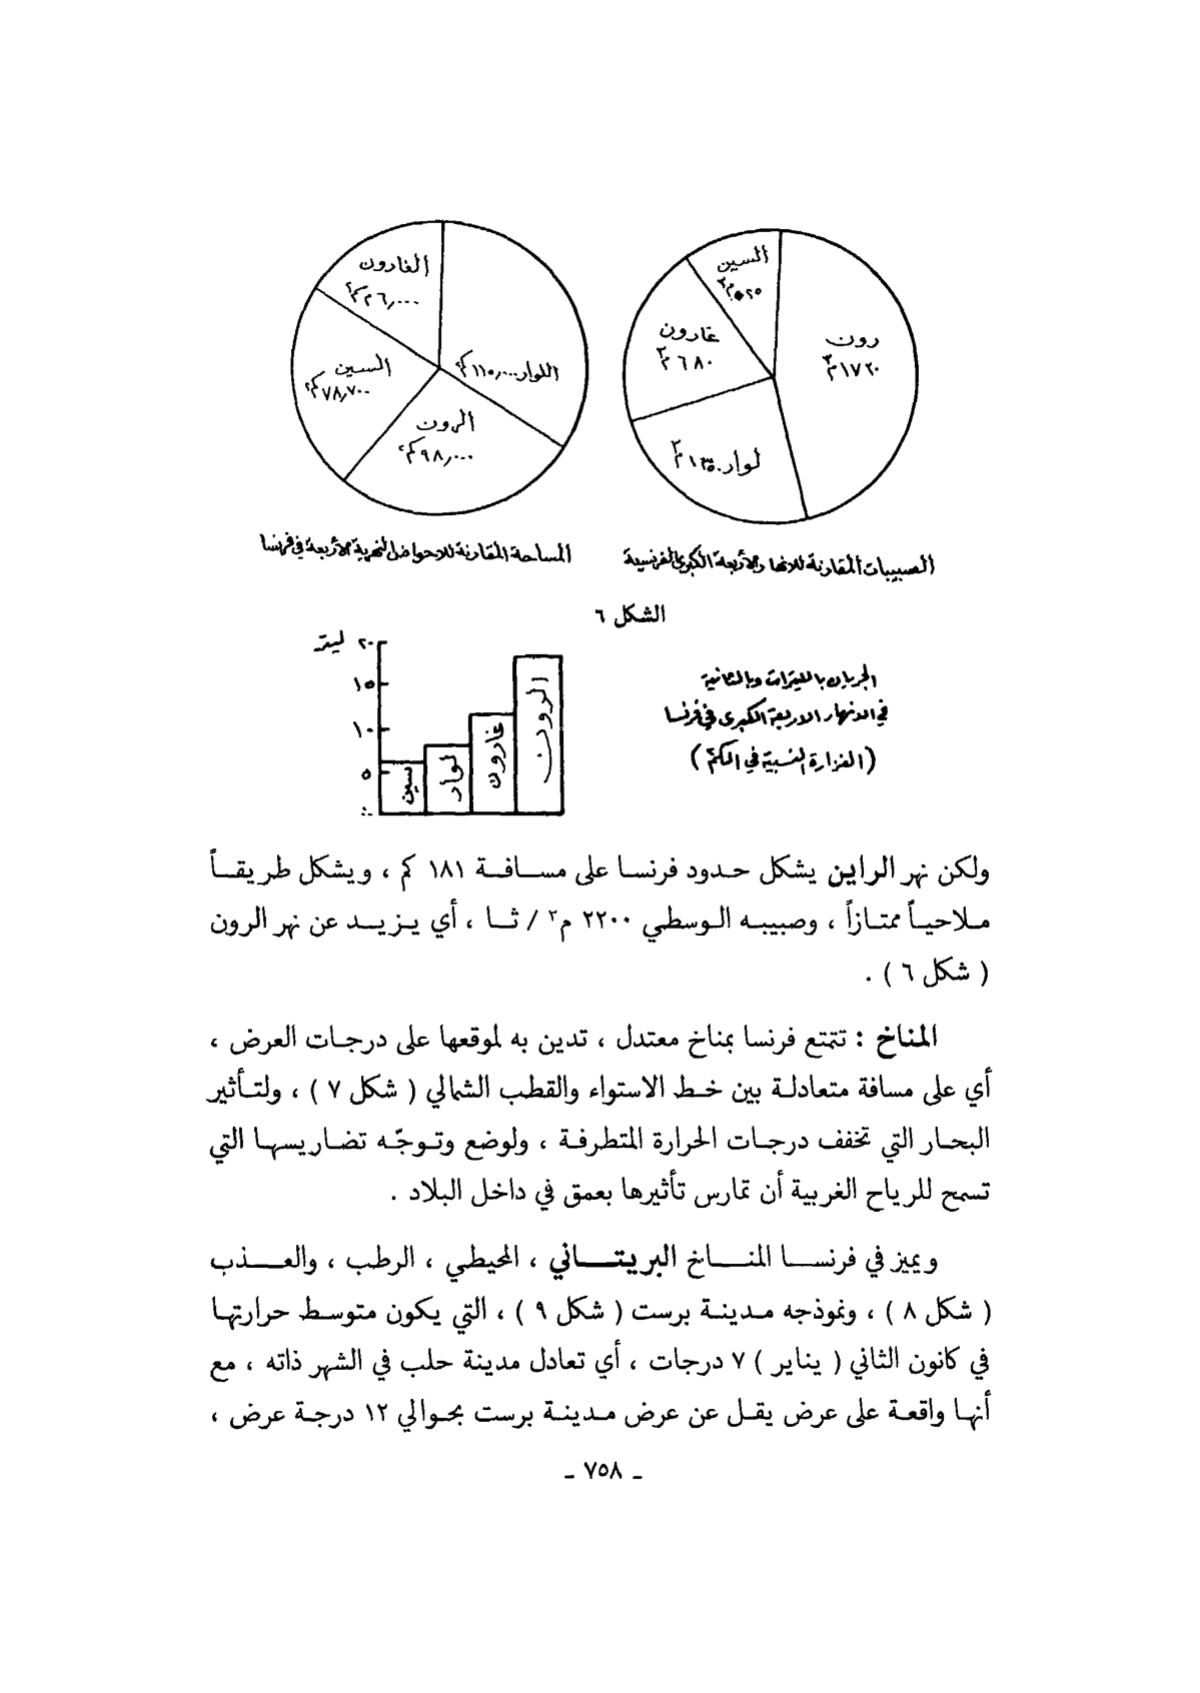 السين
٥٢٥ م٣
رون
١٧٢٠ م٣
غارون
٦٨٠ م٣
لوار
الغارون
٢٦,٠٠٠ كم٢
اللوار ١١٥,٠٠٠ كم٢
السين
٧٨,٧٠٠ كم٢
الرون
٩٨,٠٠٠ كم٢
الصبيبات المقارنة للانهار الأربعة الكبرى الفرنسية
المساحة المقارنة للاحواض النهرية الأربعة في فرنسا
الشكل ٦
الجريان بالليترات وبالثانية
في الانهار الاربعة الكبرى في فرنسا
(الغزارة النسبية في الكم٢)
ليتر ٢٠
١٥
١٠
٥
سين
لوار
غارون
الرون
ولكن نهر الراين يشكل حدود فرنسا على مسافة ١٨١ كم ، ويشكل طريقاً
ملاحياً ممتازاً ، وصبيبه الوسطي ٢٢٠٠ م٣ / ثا ، أي يزيد عن نهر الرون
( شكل ٦ ) .
المناخ : تتمتع فرنسا بمناخ معتدل ، تدين به لموقعها على درجات العرض ،
أي على مسافة متعادلة بين خط الاستواء والقطب الشمالي ( شكل ٧ ) ، ولتأثير
البحار التي تخفف درجات الحرارة المتطرفة ، ولوضع وتوجّه تضاريسها التي
تسمح للرياح الغربية أن تمارس تأثيرها بعمق في داخل البلاد .
ويميز في فرنسا المناخ البريتاني ، المحيطي ، الرطب ، والعذب
( شكل ٨ ) ، ونموذجه مدينة برست ( شكل ٩ ) ، التي يكون متوسط حرارتها
في كانون الثاني ( يناير ) ٧ درجات ، أي تعادل مدينة حلب في الشهر ذاته ، مع
أنها واقعة على عرض يقل عن عرض مدينة برست بحوالي ١٢ درجة عرض ،
ـ ٧٥٨ ـ